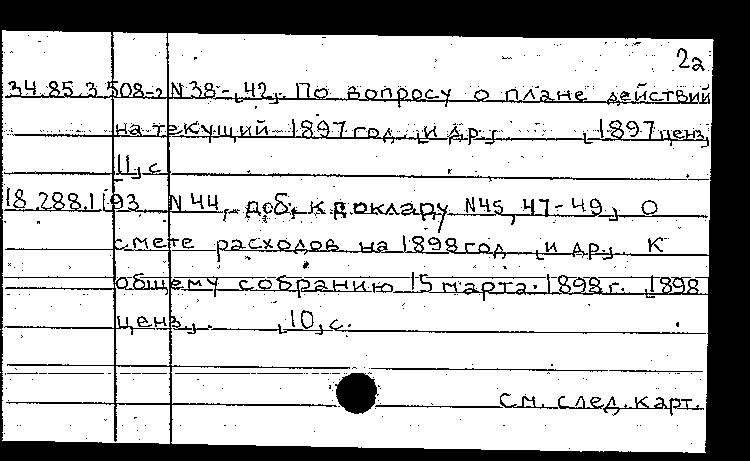 2а
34.85.3.508-2 N 38-[42]. По вопросу о плане действий
на текущий 1897 год [и др.] [1897 ценз,
11] с
18.288.1[93 N 44, доб. к докладу N45, 47-49] О
смете расходов на 1898 год [и др.] К
общему собранию 15 марта 1898 г. [1898
ценз.]. [10] с.
см. след. карт.